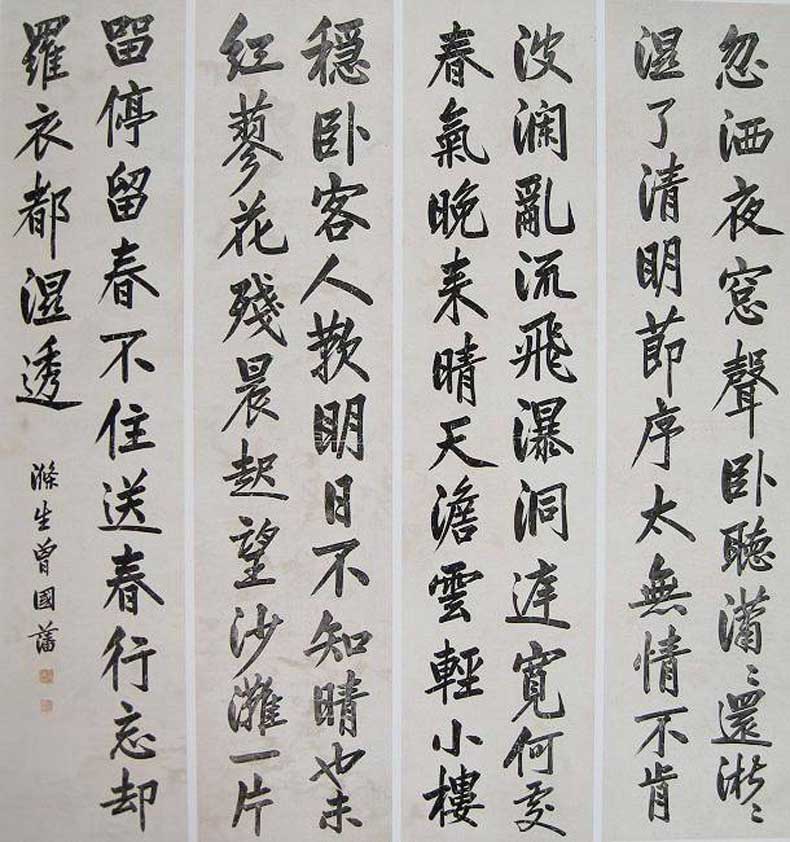 忽洒夜窓聲卧聽瀟〻還淅〻
湿了清明節序太無情不肯
波瀾亂流飛瀑洞達寬何處
春氣晚来晴天澹雲輕小樓
穏卧客人歎明日不知晴也未
紅蓼花殘晨起望沙灘一片
畱停留春不住送春行忘却
羅衣都湿透
滌生曾國藩